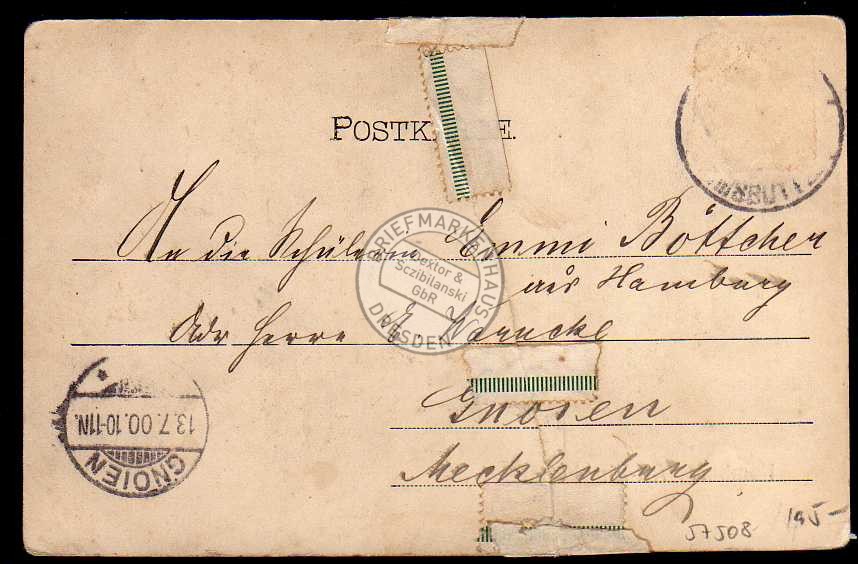 POSTK E.
An die Schülerin Emmi Böttcher
aus Hamburg
Adr Herrn E. Warncke
Gnoien
Mecklenburg
BRIEFMARKENHAUS
Dextor &
Sczibilanski
GbR
DRESDEN
13.7.00.10-11N.
GNOIEN
57508
195-